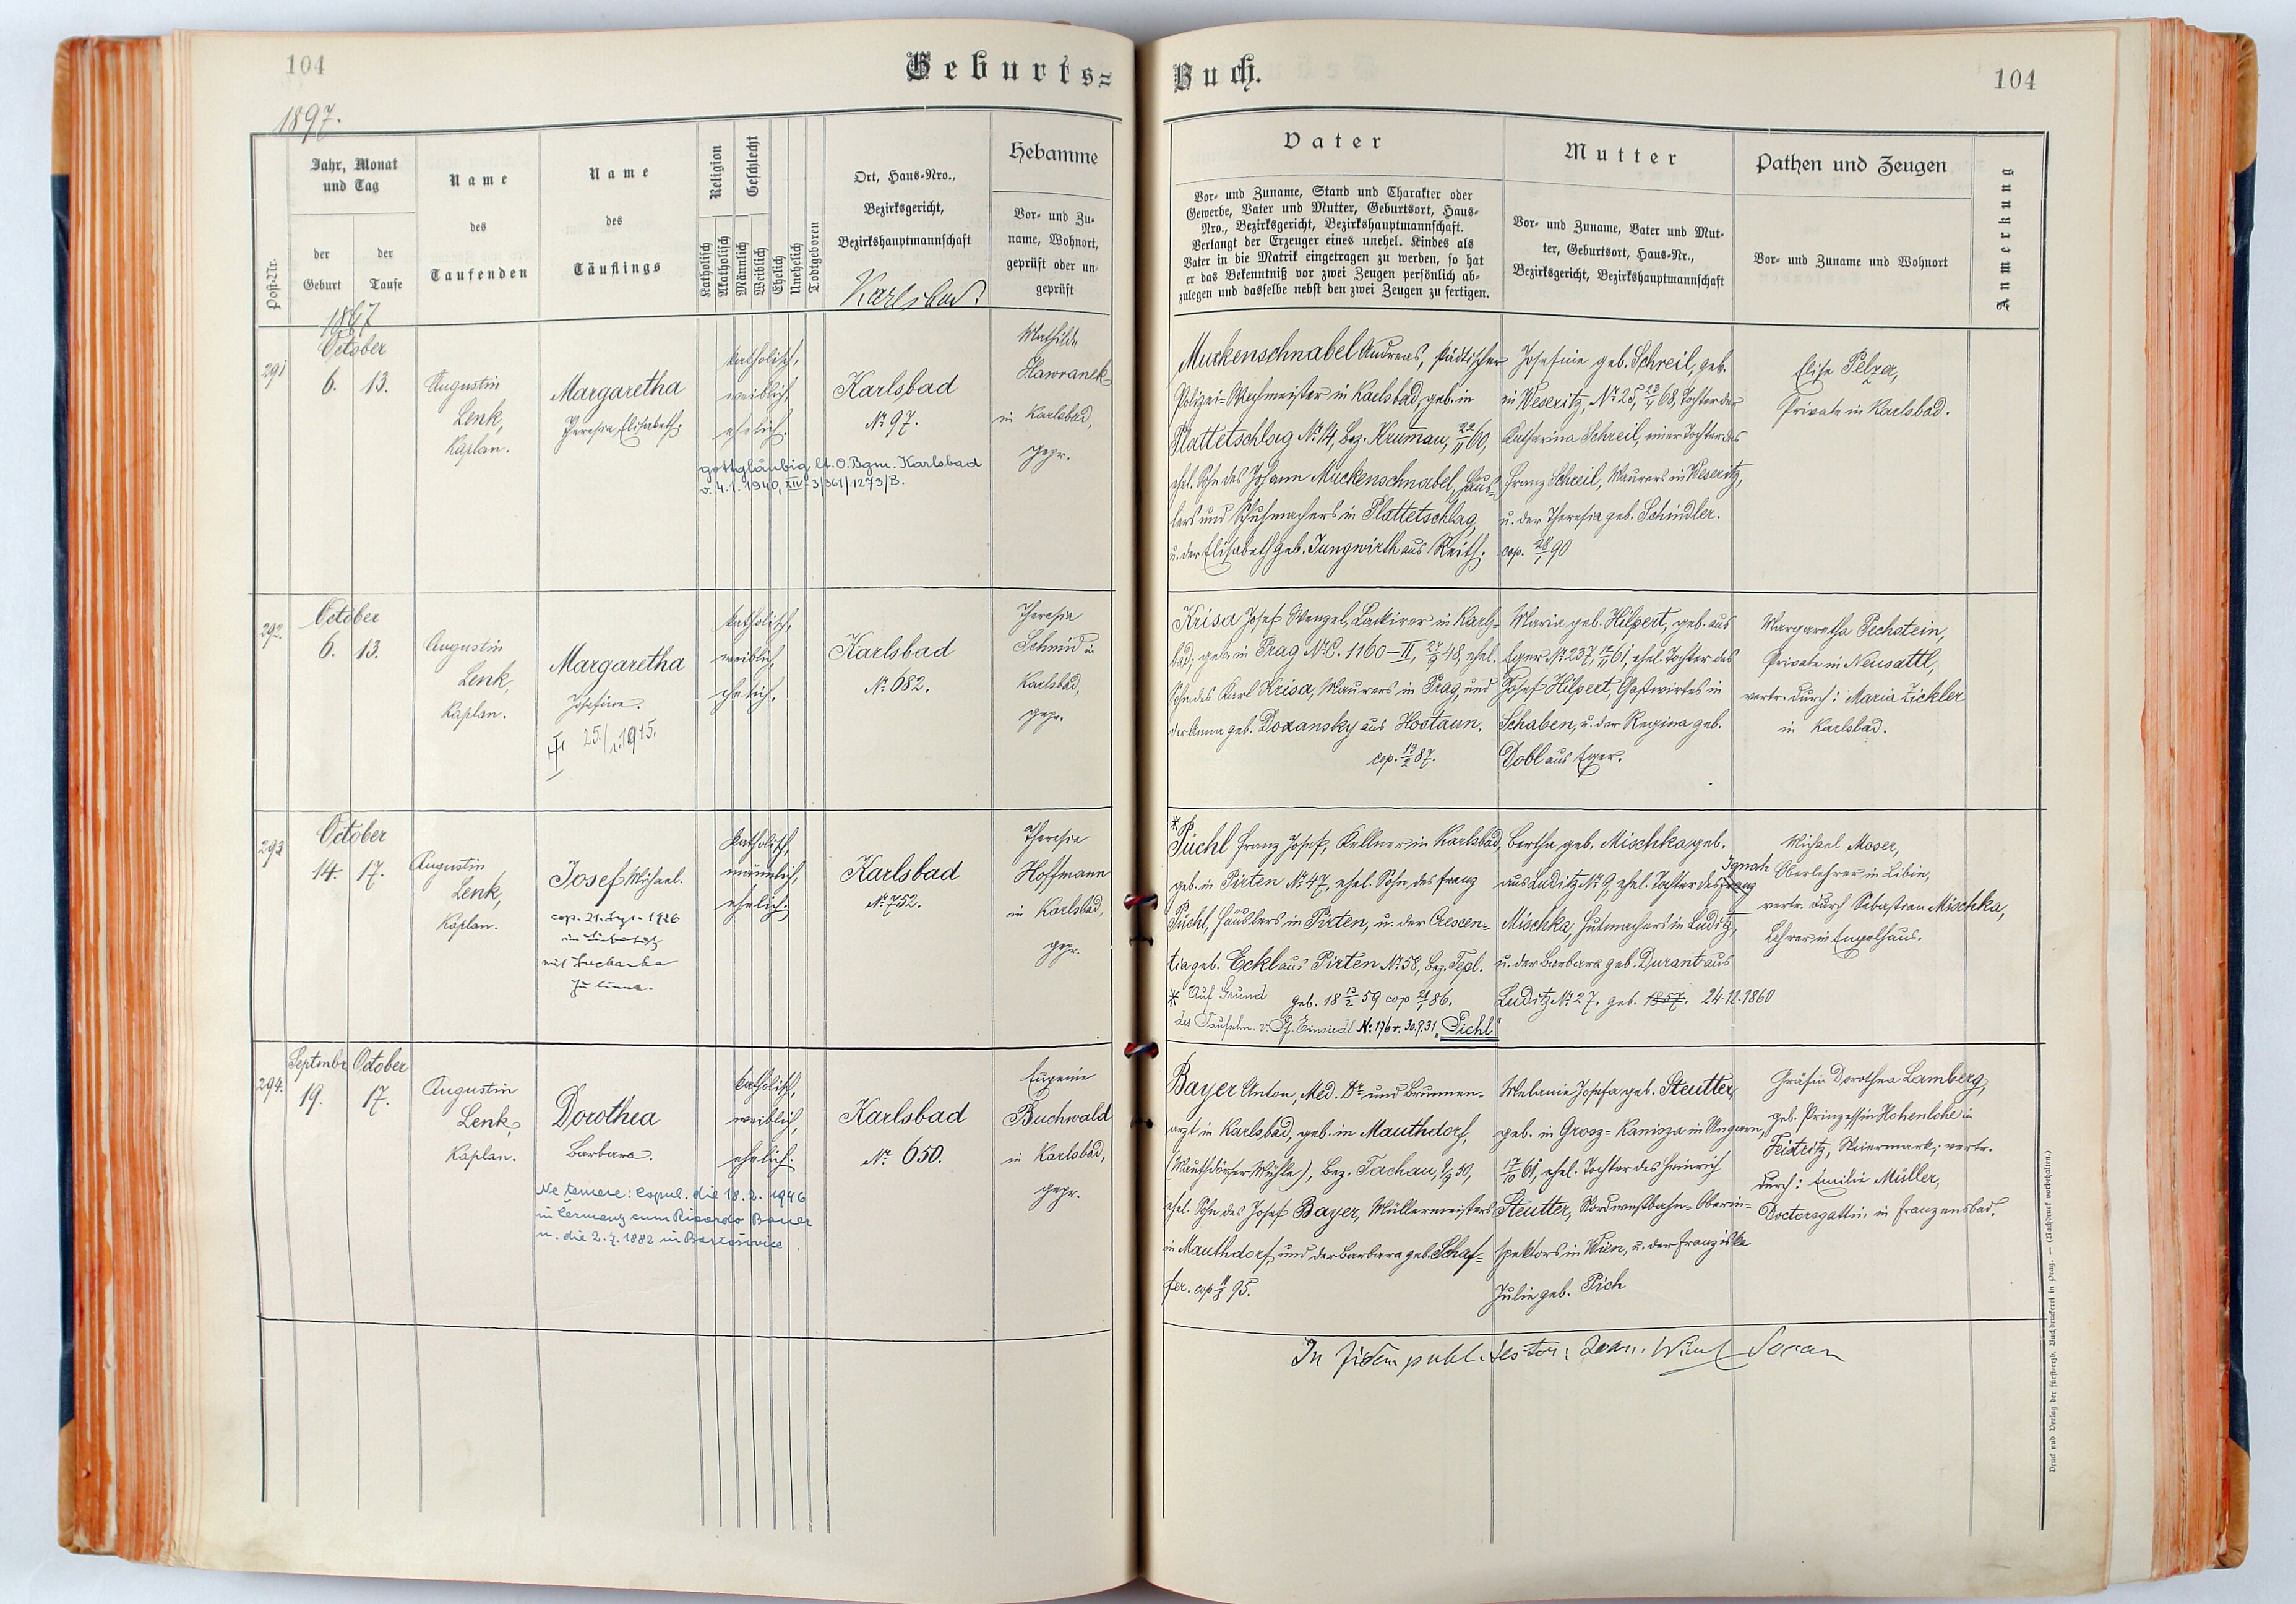 104
Geburts=
1897.
Post-Nr.
Jahr, Monat
und Tag
der
Geburt
der
Taufe
Name
des
Taufenden
Name
des
Täuflings
Religion
Katholisch
Akatholisch
Geschlecht
Männlich
Weiblich
Ehelich
Unehelich
Todtgeboren
Ort, Haus-Nro.,
Bezirksgericht,
Bezirkshauptmannschaft
Karlsbad.
Hebamme
Vor- und Zu-
name, Wohnort,
geprüft oder un-
geprüft
1897
291
October
6. 13.
Augustin
Lenk,
Kaplan.
Margaretha
Theresia Elisabeth.
katholisch,
weiblich,
ehelich.
gottgläubig lt. O.Bgm. Karlsbad
v. 4.1.1940, XIV-3/361/1273/B.
Karlsbad
No 97.
Mathilde
Hawranek
in Karlsbad,
gepr.
292.
October
6. 13.
Augustin
Lenk,
Kaplan.
Margaretha
Josefine.
25./1. 1915.
katholisch,
weiblich,
ehelich.
Karlsbad
No 682.
Theresia
Schmid in
Karlsbad,
gepr.
293
October
14. 17.
Augustin
Lenk,
Kaplan.
Josef Michael.
cop. 21. 1926
in
mit
katholisch,
männlich,
ehelich.
Karlsbad
No 752.
Theresia
Hoffmann
in Karlsbad,
gepr.
294.
September October
19. 17.
Augustin
Lenk,
Kaplan.
Dorothea
Barbara.
Ne temere: Copul. die 18. 2. 1946
in Germany cum Ricardo Bauer
n. die 2. 7. 1882 in Bartošovice.
katholisch,
weiblich,
ehelich.
Karlsbad
No 650.
Eugenie
Buchwald
in Karlsbad,
gepr.
Buch.
104
Vater
Vor- und Zuname, Stand und Charakter oder
Gewerbe, Vater und Mutter, Geburtsort, Haus-
Nro., Bezirksgericht, Bezirkshauptmannschaft.
Verlangt der Erzeuger eines unehel. Kindes als
Vater in die Matrik eingetragen zu werden, so hat
er das Bekenntniß vor zwei Zeugen persönlich ab-
zulegen und dasselbe nebst den zwei Zeugen zu fertigen.
Mutter
Vor- und Zuname, Vater und Mut-
ter, Geburtsort, Haus-Nr.,
Bezirksgericht, Bezirkshauptmannschaft
Pathen und Zeugen
Vor- und Zuname und Wohnort
Anmerkung
Muckenschnabel Andreas, städtischer
Polizei-Wachmeister in Karlsbad, geb. in
Plattetschlag No 14, Bez. Krumau, 22/11 60,
ehel. Sohn des Johann Muckenschnabel, Häus-
lers und Schuhmachers in Plattetschlag,
u. der Elisabeth geb. Jungwirth aus Reith.
Josefine geb. Schreil, geb.
in Weseritz, No 25, 13/5 68, Tochter der
Katharina Schreil, einer Tochter des
Franz Schreil, Maurers in Weseritz,
u. der Theresia geb. Schindler.
cop. 28/1 90
Elise Pelzer,
Private in Karlsbad.
Krisa Josef Wenzel, Lackirer in Karls-
bad, geb. in Prag No C. 1160-II, 27/9 48, ehel.
Sohn des Karl Krisa, Maurers in Prag, und
der Anna geb. Doxansky aus Hostaun.
cop. 13/2 87.
Maria geb. Hilpert, geb. aus
Eger No 237, 17/11 61, ehel. Tochter des
Josef Hilpert, Gastwirtes in
Schaben, u. der Regina geb.
Dobl aus Eger.
Margaretha Pechstein,
Private in Neusattl,
vertr. durch: Maria Zickler
in Karlsbad.
* Püchl Franz Josef, Kellner in Karlsbad,
geb. in Pirten No 47, ehel. Sohn des Franz
Püchl, Häuslers in Pirten, u. der Crescen-
tia geb. Eckl aus Pirten No 58, Bez. Tepl.
geb. 18 13/2 59 cop 21/1 86.
* Auf Grund
des Taufschn. v. Pf. Einsiedl No 176 v. 30.9.31 „Pichl"
Bertha geb. Mischka, geb.
aus Luditz No 9, ehel. Tochter des Franz Ignatz
Mischka, Hutmachers in Luditz,
u. der Barbara geb. Durant aus
Luditz No 27. geb. 1857. 24.12.1860
Michael Moser,
Oberlehrer in Libin,
vertr. durch Sebastian Mischka,
Lehrer in Engelhaus.
Bayer Anton, Med. Dr und Brunnen-
arzt in Karlsbad, geb. in Mauthdorf,
(Mauthdorfer Mühle), Bez. Tachau, 9/9 50,
ehel. Sohn des Josef Bayer, Müllermeisters
in Mauthdorf, und der Barbara geb. Schaf-
fer. cop 95.
Melanie Josefa geb. Steutter,
geb. in Grosz-Kanisza in Ungarn,
17/10 61, ehel. Tochter des Heinrich
Steutter, Nordwestbahn-Oberin-
spektors in Wien, u. der Franziska
Julie geb. Pich
Gräfin Dorothea Lamberg,
geb. Prinzessin Hohenlohe in
Feistritz, Steiermark; vertr.
durch: Emilie Müller,
Doctorsgattin, in Franzensbad.
In fidem publ. testor:
Druck und Verlag der fürsterzb. Buchdruckerei in Prag. — (Nachdruck vorbehalten.)